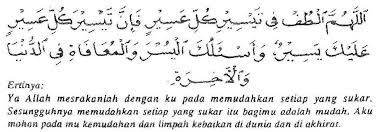 اَللّٰهُمَّ الْطُفْ فِى تَيْسِيْرِ كُلِّ عَسِيْرٍ فَإِنَّ تَيْسِيْرَ كُلِّ عَسِيْرٍ
عَلَيْكَ يَسِيْرٌ وَأَسْئَلُكَ الْيُسْرَ وَالْمُعَافَاةَ فِى الدُّنْيَا
وَالْاٰخِرَةِ
Ertinya:
Ya Allah mesrakanlah dengan ku pada memudahkan setiap yang sukar.
Sesungguhnya memudahkan setiap yang sukar itu bagimu adalah mudah. Aku
mohon pada mu kemudahan dan limpah kebaikan di dunia dan di akhirat.